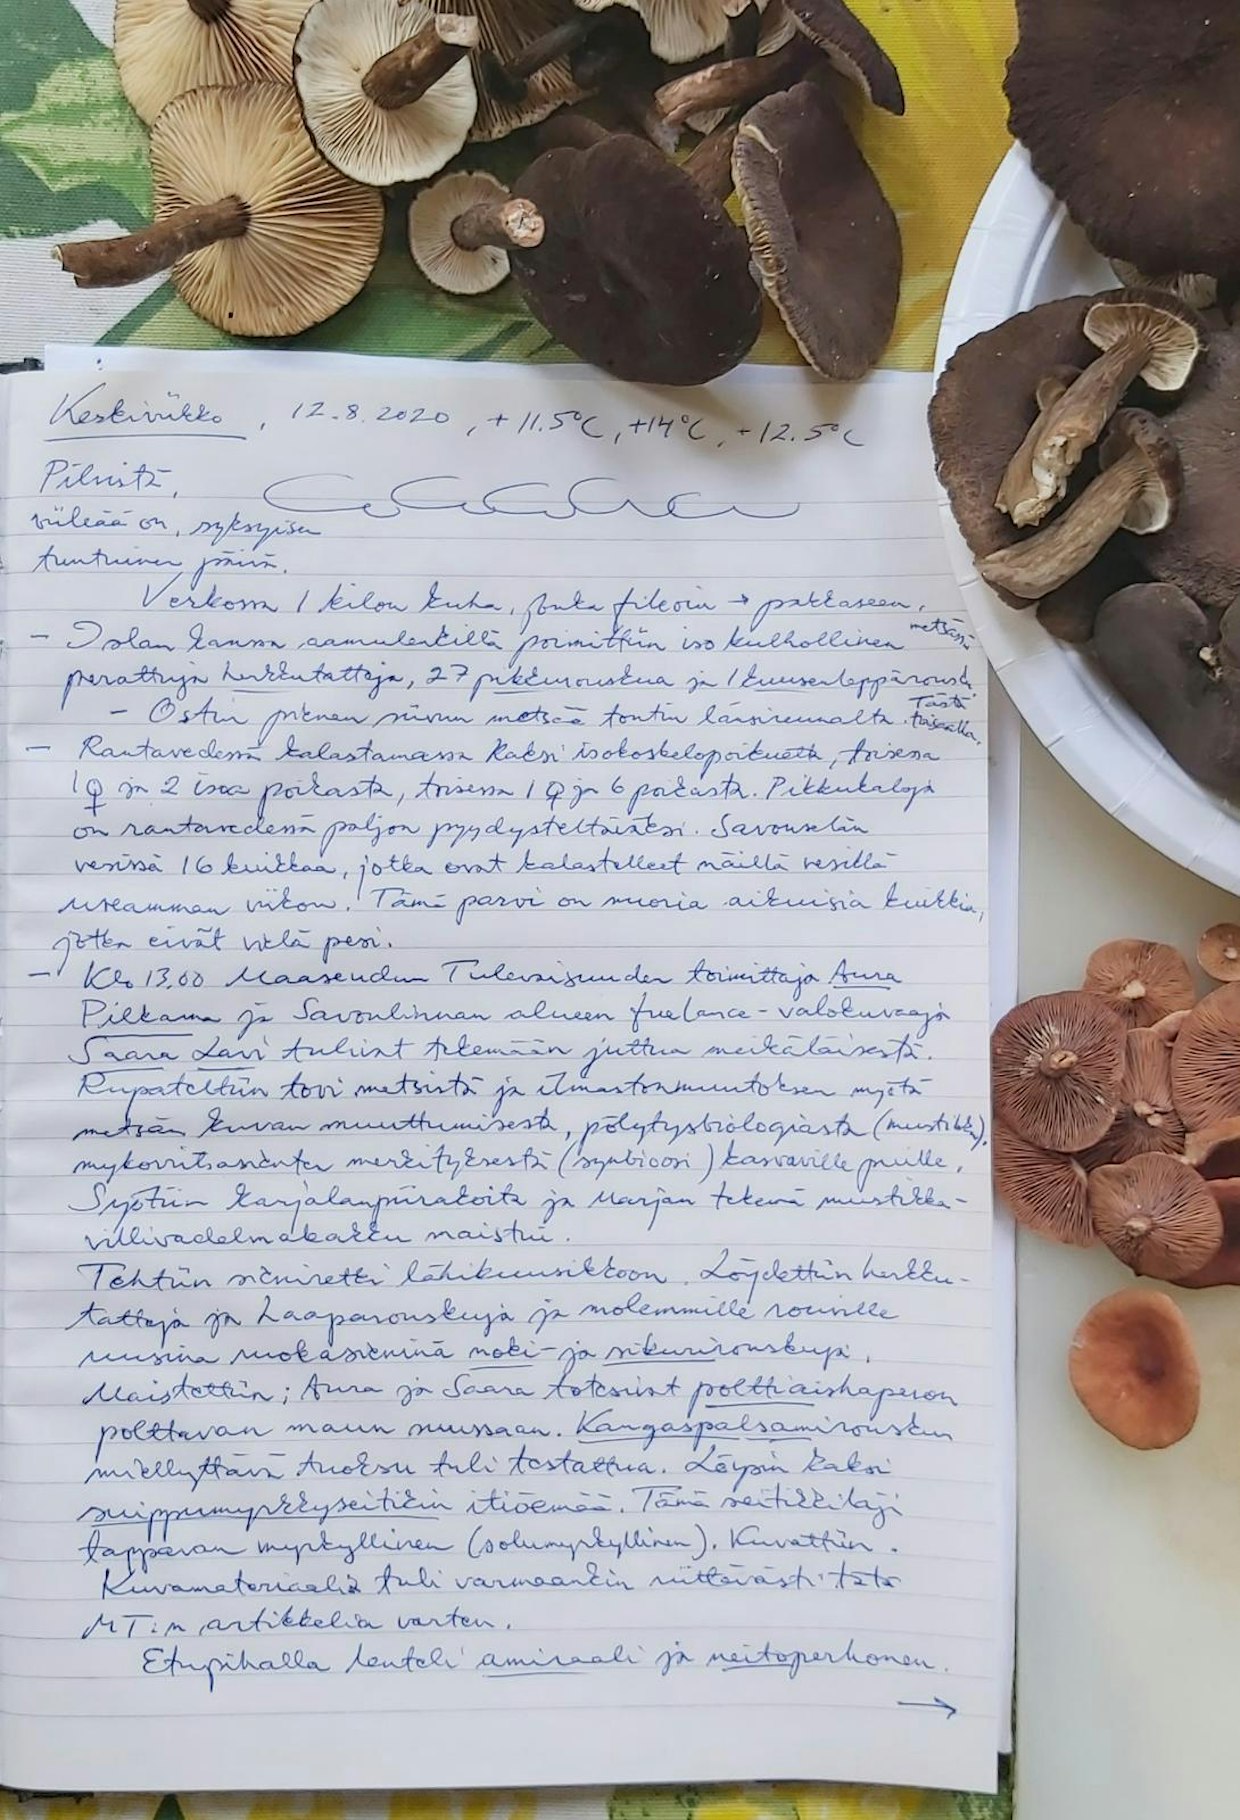 Keskiviikko, 12.8.2020, +11.5°C, +14°C, +12.5°C
Pilvistä,
viileää on, syksyisen
tuntuinen päivä.
Verkossa 1 kilon kuha, joka fileoin → pakkaseen.
- Iolan kanssa aamulenkillä poimittiin iso kulhollinen metsässä
perattuja herkkutatteja, 27 pikkurouskua ja 1 kuusenleppärousku.
- Ostin pienen siivun metsää tontin länsireunalta. Tästä toisaalla.
- Rantavedessä kalastamassa kaksi isokoskelopoikuetta, toisessa
1♀ ja 2 isoa poikasta, toisessa 1♀ ja 6 poikasta. Pikkukaloja
on rantavedessä paljon pyydysteltäväksi. Savonselän
vesissä 16 kuikkaa, jotka ovat kalastelleet näillä vesillä
useamman viikon. Tämä parvi on nuoria aikuisia kuikkia,
jotka eivät vielä pesi.
- Klo 13.00 Maaseudun Tulevaisuuden toimittaja Aura
Pilkama ja Savonlinnan alueen freelance-valokuvaaja
Saara Lavi tulivat tekemään juttua meikäläisestä.
Rupateltiin tovi metsistä ja ilmastonmuutoksen myötä
metsän kuvan muuttumisesta, pölytysbiologiasta (mustikka),
mykorritsasienten merkityksestä (symbioosi) kasvaville puille.
Syötiin karjalanpiirakoita ja Marjan tekemä mustikka-
villivadelmakakku maistui.
Tehtiin sieniretki lähikuusikkoon. Löydettiin herkku-
tatteja ja haaparouskuja ja molemmille rouville
uusina ruokasieninä noki- ja sikurirouskuja.
Maistettiin; Aura ja Saara totesivat polttiaishaperon
polttavan maun suussaan. Kangaspalsamirouskun
miellyttävä tuoksu tuli testattua. Löysin kaksi
suippumyrkkyseitikin itiöemää. Tämä seitikkilaji
tappavan myrkyllinen (solumyrkyllinen). Kuvattiin.
Kuvamateriaalia tuli varmaankin riittävästi tätä
MT:n artikkelia varten.
Etupihalla lenteli amiraali ja neitoperhonen.
→